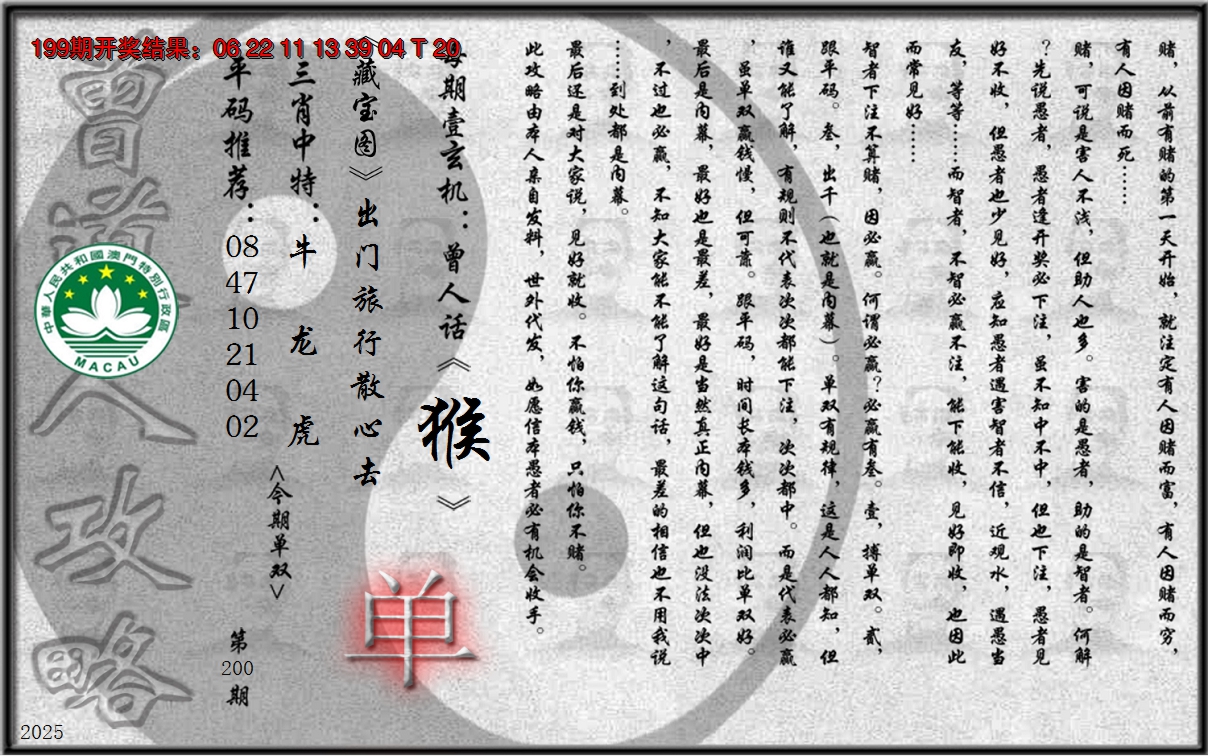 199期开奖结果：06 22 11 13 39 04 T 20
赌，从前有赌的第一天开始，就注定有人因赌而富，有人因赌而穷，
有人因赌而死……
赌，可说是害人不浅，但助人也多。害的是愚者，助的是智者。何解
？先说愚者，愚者逢开奖必下注，虽不知中不中，但也下注，愚者见
好不收，但愚者也少见好，应知愚者遇害智者不信，近观水，遇愚当
友，等等……而智者，不智必赢不注，能下能收，见好即收，也因此
而常见好……
智者下注不算赌，因必赢。何谓必赢？必赢有叁。壹，搏单双。贰，
跟平码。叁，出千（也就是内幕）。单双有规律，这是人人都知，但
谁又能了解，有规则不代表次次都能下注，次次都中。而是代表必赢
，虽单双赢钱慢，但可靠。跟平码，时间长本钱多，利润比单双好。
最后是内幕，最好也是最差，最好是当然真正内幕，但也没法次次中
，不过也必赢，不知大家能不能了解这句话，最差的相信也不用我说
……到处都是内幕。
最后还是对大家说，见好就收。不怕你赢钱，只怕你不赌。
此攻略由本人亲自发料，世外代发，如愿信本愚者必有机会收手。
每期壹玄机：曾人话《猴》
《藏宝图》出门旅行散心去
单
三肖中特：牛 龙 虎
<今期单双>
平码推荐：08 47 10 21 04 02
第200期
曾道人攻略
中華人民共和國澳門特別行政區
MACAU
2025